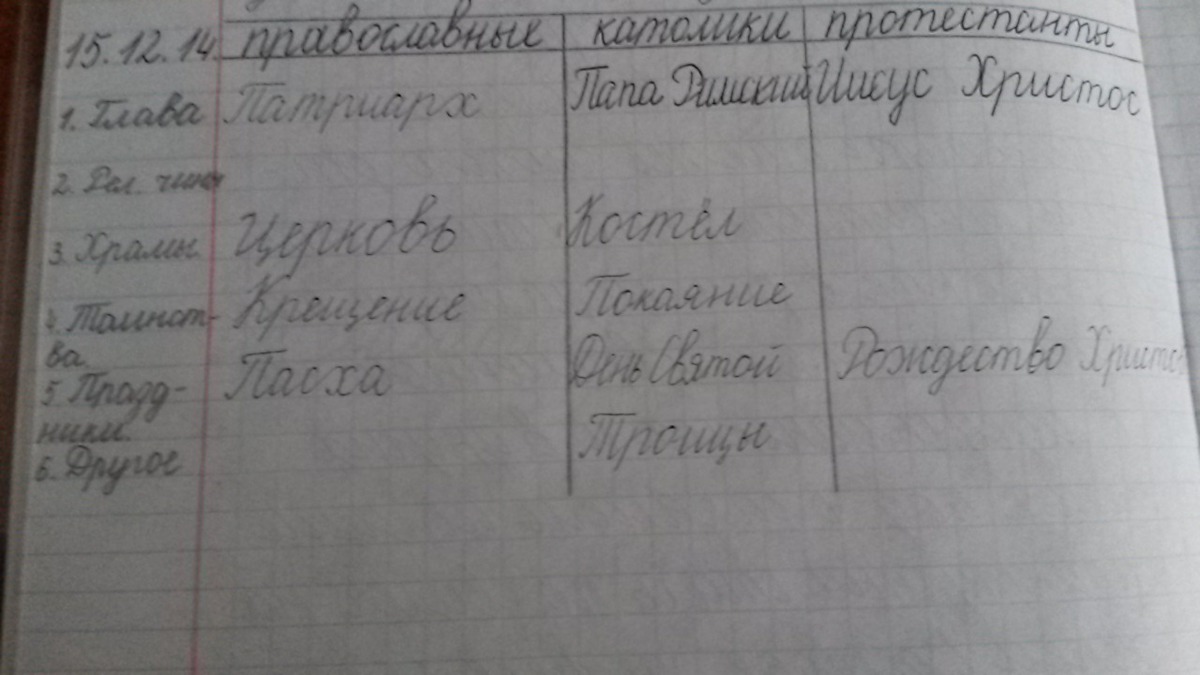 15.12.14. православные католики протестанты
1. Глава Патриарх Папа Римский Иисус Христос
2. Рел. чины
3. Храмы Церковь Костёл
4. Таинст- Крещение Покаяние
ва
5. Празд- Пасха День Святой Рождество Христово
ники. Троицы
6. Другое